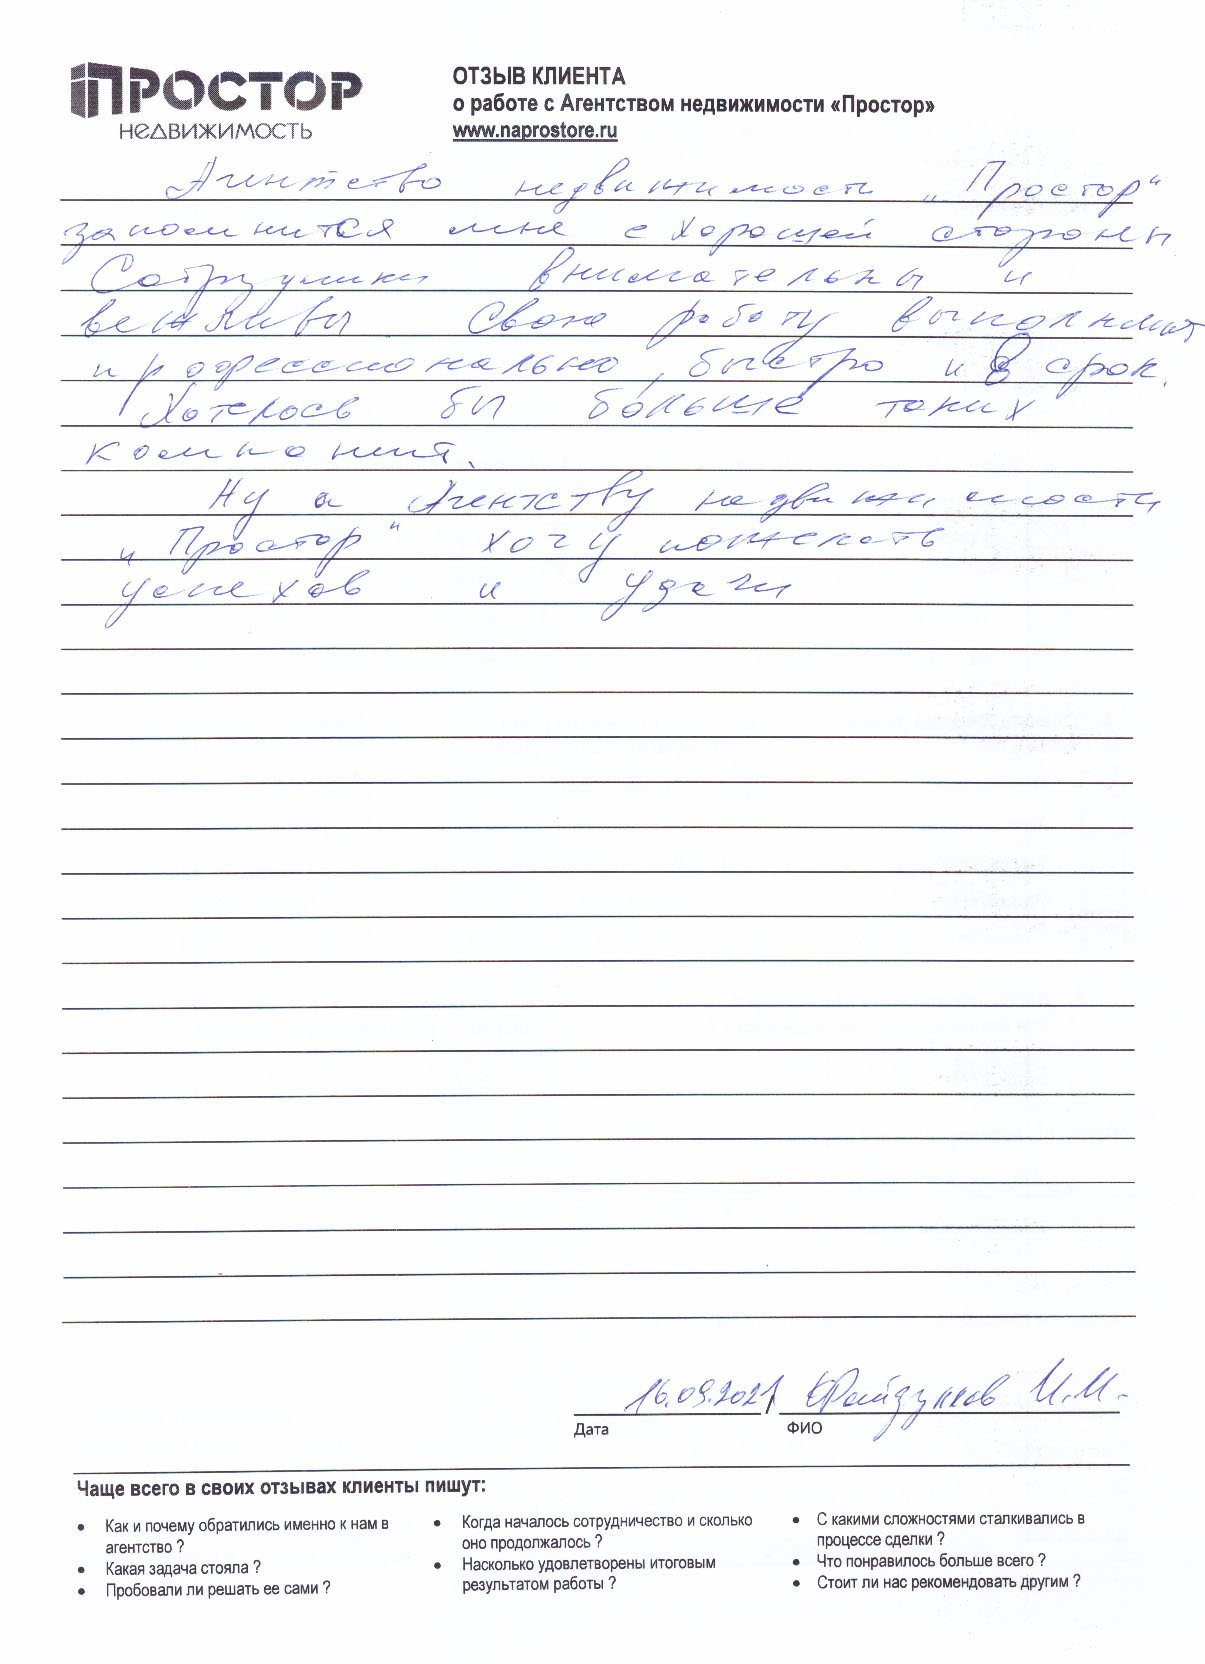 ПРОСТОР
НЕДВИЖИМОСТЬ
ОТЗЫВ КЛИЕНТА
о работе с Агентством недвижимости «Простор»
www.naprostore.ru
Агентство недвижимости „Простор“
запомнится мне с хорошей стороны
Сотрудники внимательны и
вежливы Свою работу выполняют
профессионально, быстро и в срок.
Хотелось бы больше таких
компаний.
Ну а Агентству недвижимости
„Простор“ хочу пожелать
успехов и удачи
16.09.2021
И.М.
Дата
ФИО
Чаще всего в своих отзывах клиенты пишут:
• Как и почему обратились именно к нам в
агентство ?
• Какая задача стояла ?
• Пробовали ли решать ее сами ?
• Когда началось сотрудничество и сколько
оно продолжалось ?
• Насколько удовлетворены итоговым
результатом работы ?
• С какими сложностями сталкивались в
процессе сделки ?
• Что понравилось больше всего ?
• Стоит ли нас рекомендовать другим ?